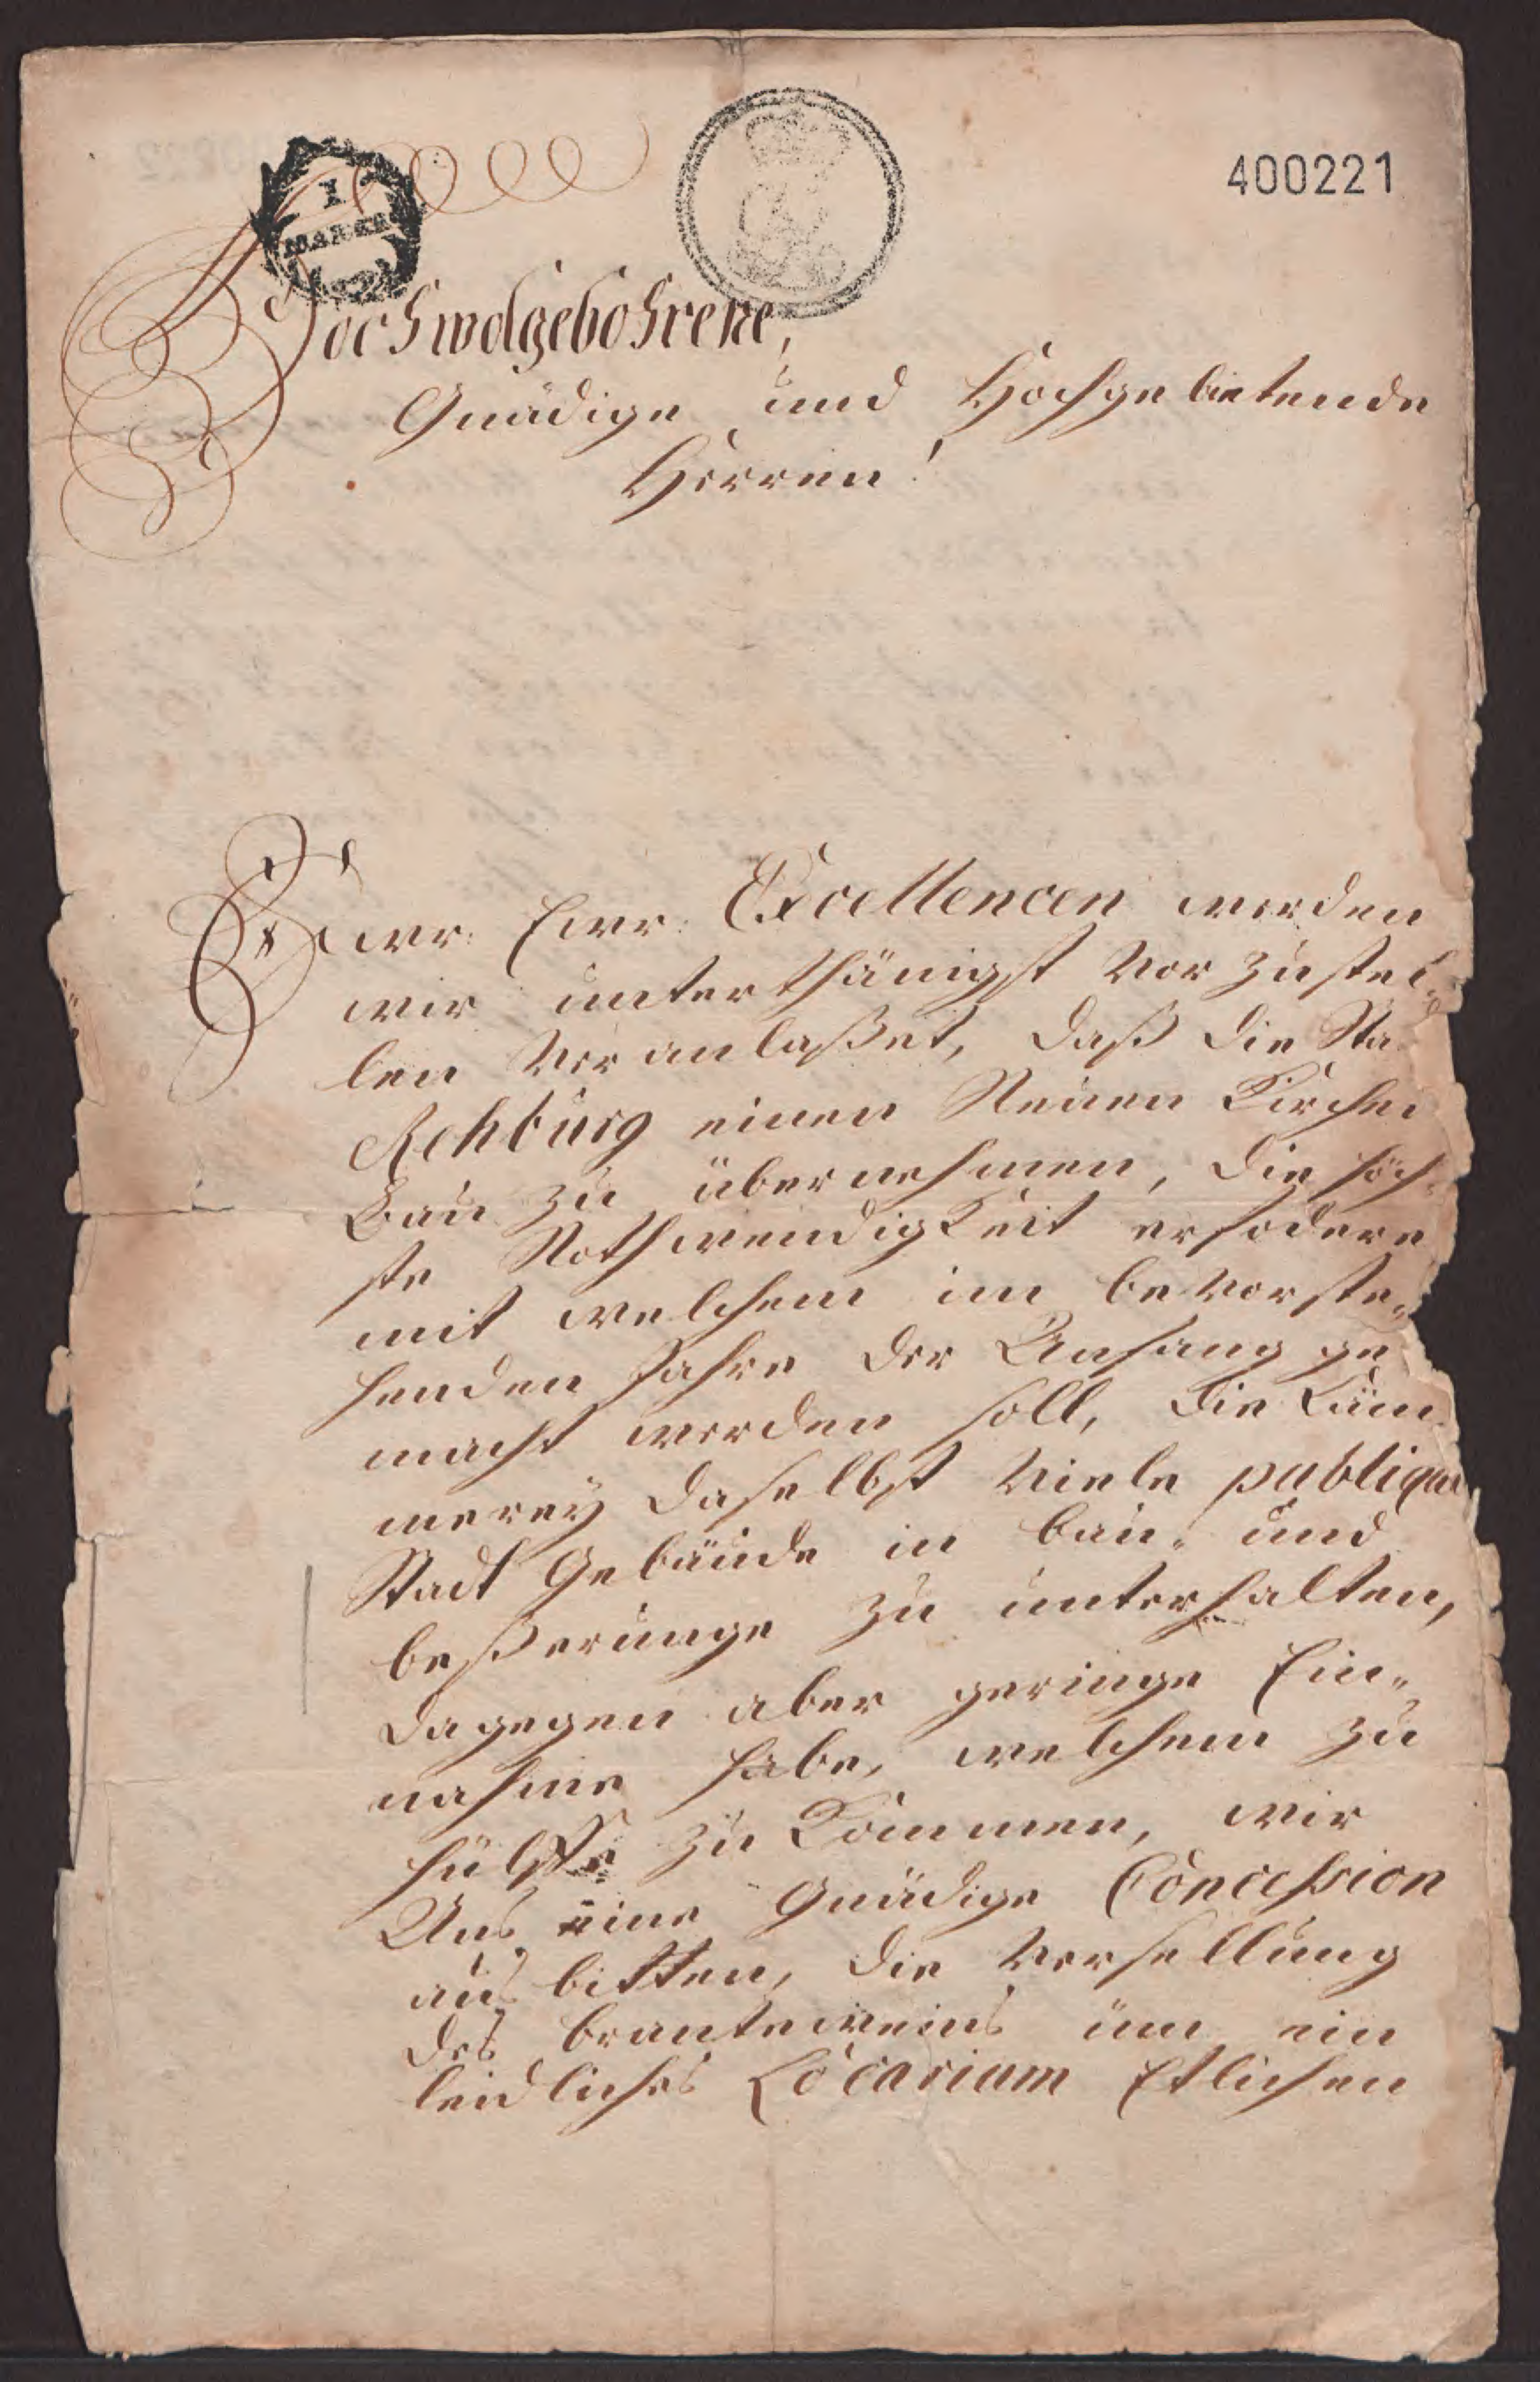 400221
I
MARIEN
Hochwolgebohrene,
Gnädige und Hochgebietende
Herren!
Ewr: Ewr: Excellencen werden
wir unterthänigst vorzustel„
len veranlaßet, daß die Sta
Rehburg einen Neuen Kirchen
Bau zu übernehmen, die höch„
ste Nothwendigkeit erfodere
mit welchem im bevorste„
henden Jahre der Anfang ge
macht werden soll, die Cäm„
merey daselbst viele publique
Stadt Gebäude in bau„ und
beßerunge zu unterhalten,
dagegen aber geringe Ein„
nahme habe, welchem zu
hülffe zu kommen, wir
Uns eine Gnädige Concession
aus bitten, die versellung
des branteweins üm ein
leidliches Locarium Etlichen